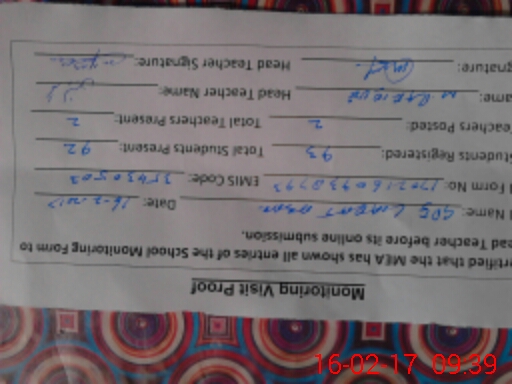 Monitoring Visit Proof
ertified that the MEA has shown all entries of the School Monitoring Form to
ead Teacher before its online submission.
l Name: GPS Date: 16-2-2017
l Form No: EMIS Code: 35430503
Students Registered: 93 Total Students Present: 92
Teachers Posted: 2 Total Teachers Present: 2
ame: Head Teacher Name:
gnature: Head Teacher Signature:
16-02-17 09:39